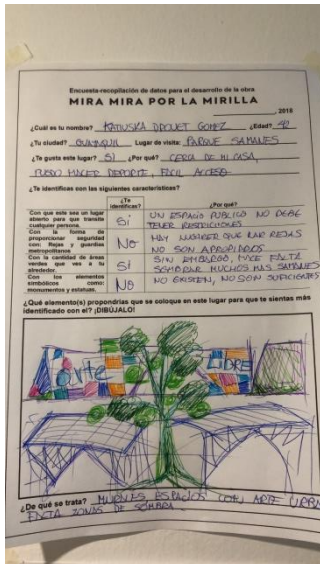 Encuesta-recopilación de datos para el desarrollo de la obra
MIRA MIRA POR LA MIRILLA
, 2018
¿Cuál es tu nombre? KATIUSKA DROUET GOMEZ ¿Edad? 42
¿Tu ciudad? GUAYAQUIL Lugar de visita: PARQUE SAMANES
¿Te gusta este lugar? SI ¿Por qué? CERCA DE MI CASA,
PUEDO HACER DEPORTE, FACIL ACCESO
¿Te identificas con las siguientes características?
¿Te identificas? ¿Por qué?
Con que este sea un lugar abierto para que transite cualquier persona. SI UN ESPACIO PUBLICO NO DEBE TENER RESTRICCIONES
Con la forma de proporcionar seguridad con: Rejas y guardias metropolitanos NO HAY LUGARES QUE LAS REJAS NO SON APROPIADOS
Con la cantidad de áreas verdes que ves a tu alrededor. SI SIN EMBARGO, HACE FALTA SEMBRAR MUCHOS MAS SAMANES
Con los elementos simbólicos como: monumentos y estatuas. NO NO EXISTEN, NO SON SUFICIENTES
¿Qué elemento(s) propondrías que se coloque en este lugar para que te sientas más
identificado con el? ¡DIBÚJALO!
arte LIBRE
¿De qué se trata? MURALES ESPACIOS CON ARTE URBA
FALTA ZONAS DE SOMBRA.